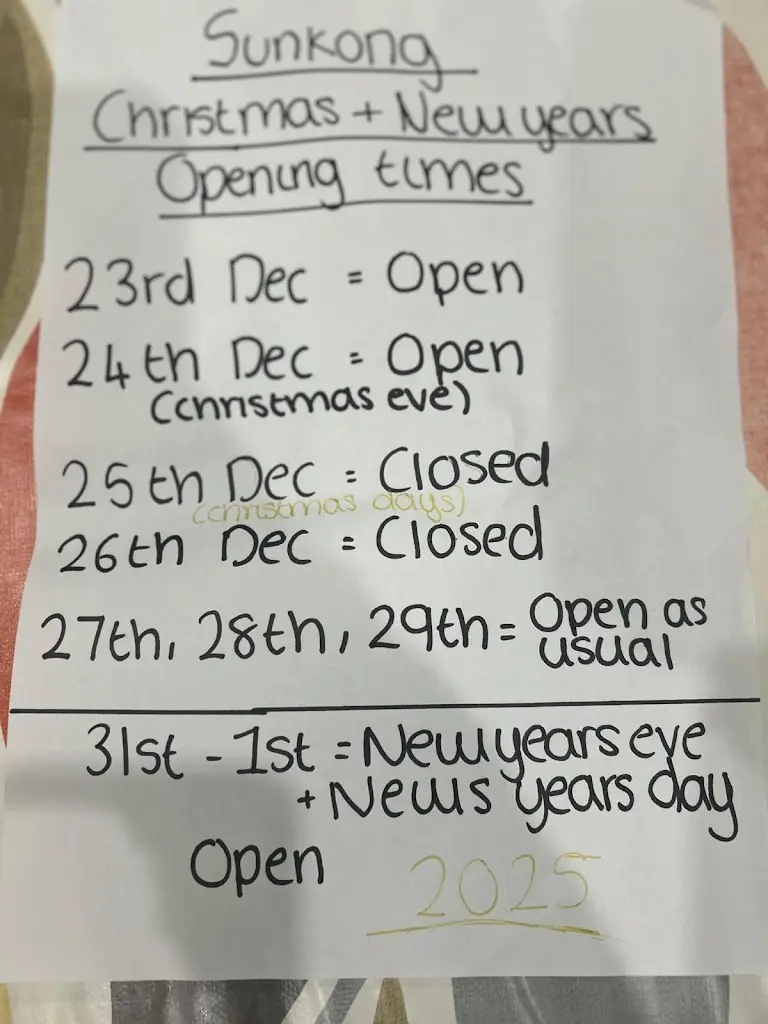 Sunkong
Christmas + New years
Opening times
23rd Dec = Open
24th Dec = Open
(christmas eve)
25th Dec = Closed
(christmas days)
26th Dec = Closed
27th, 28th, 29th = Open as
usual
31st - 1st = New years eve
+ News years day
Open
2025